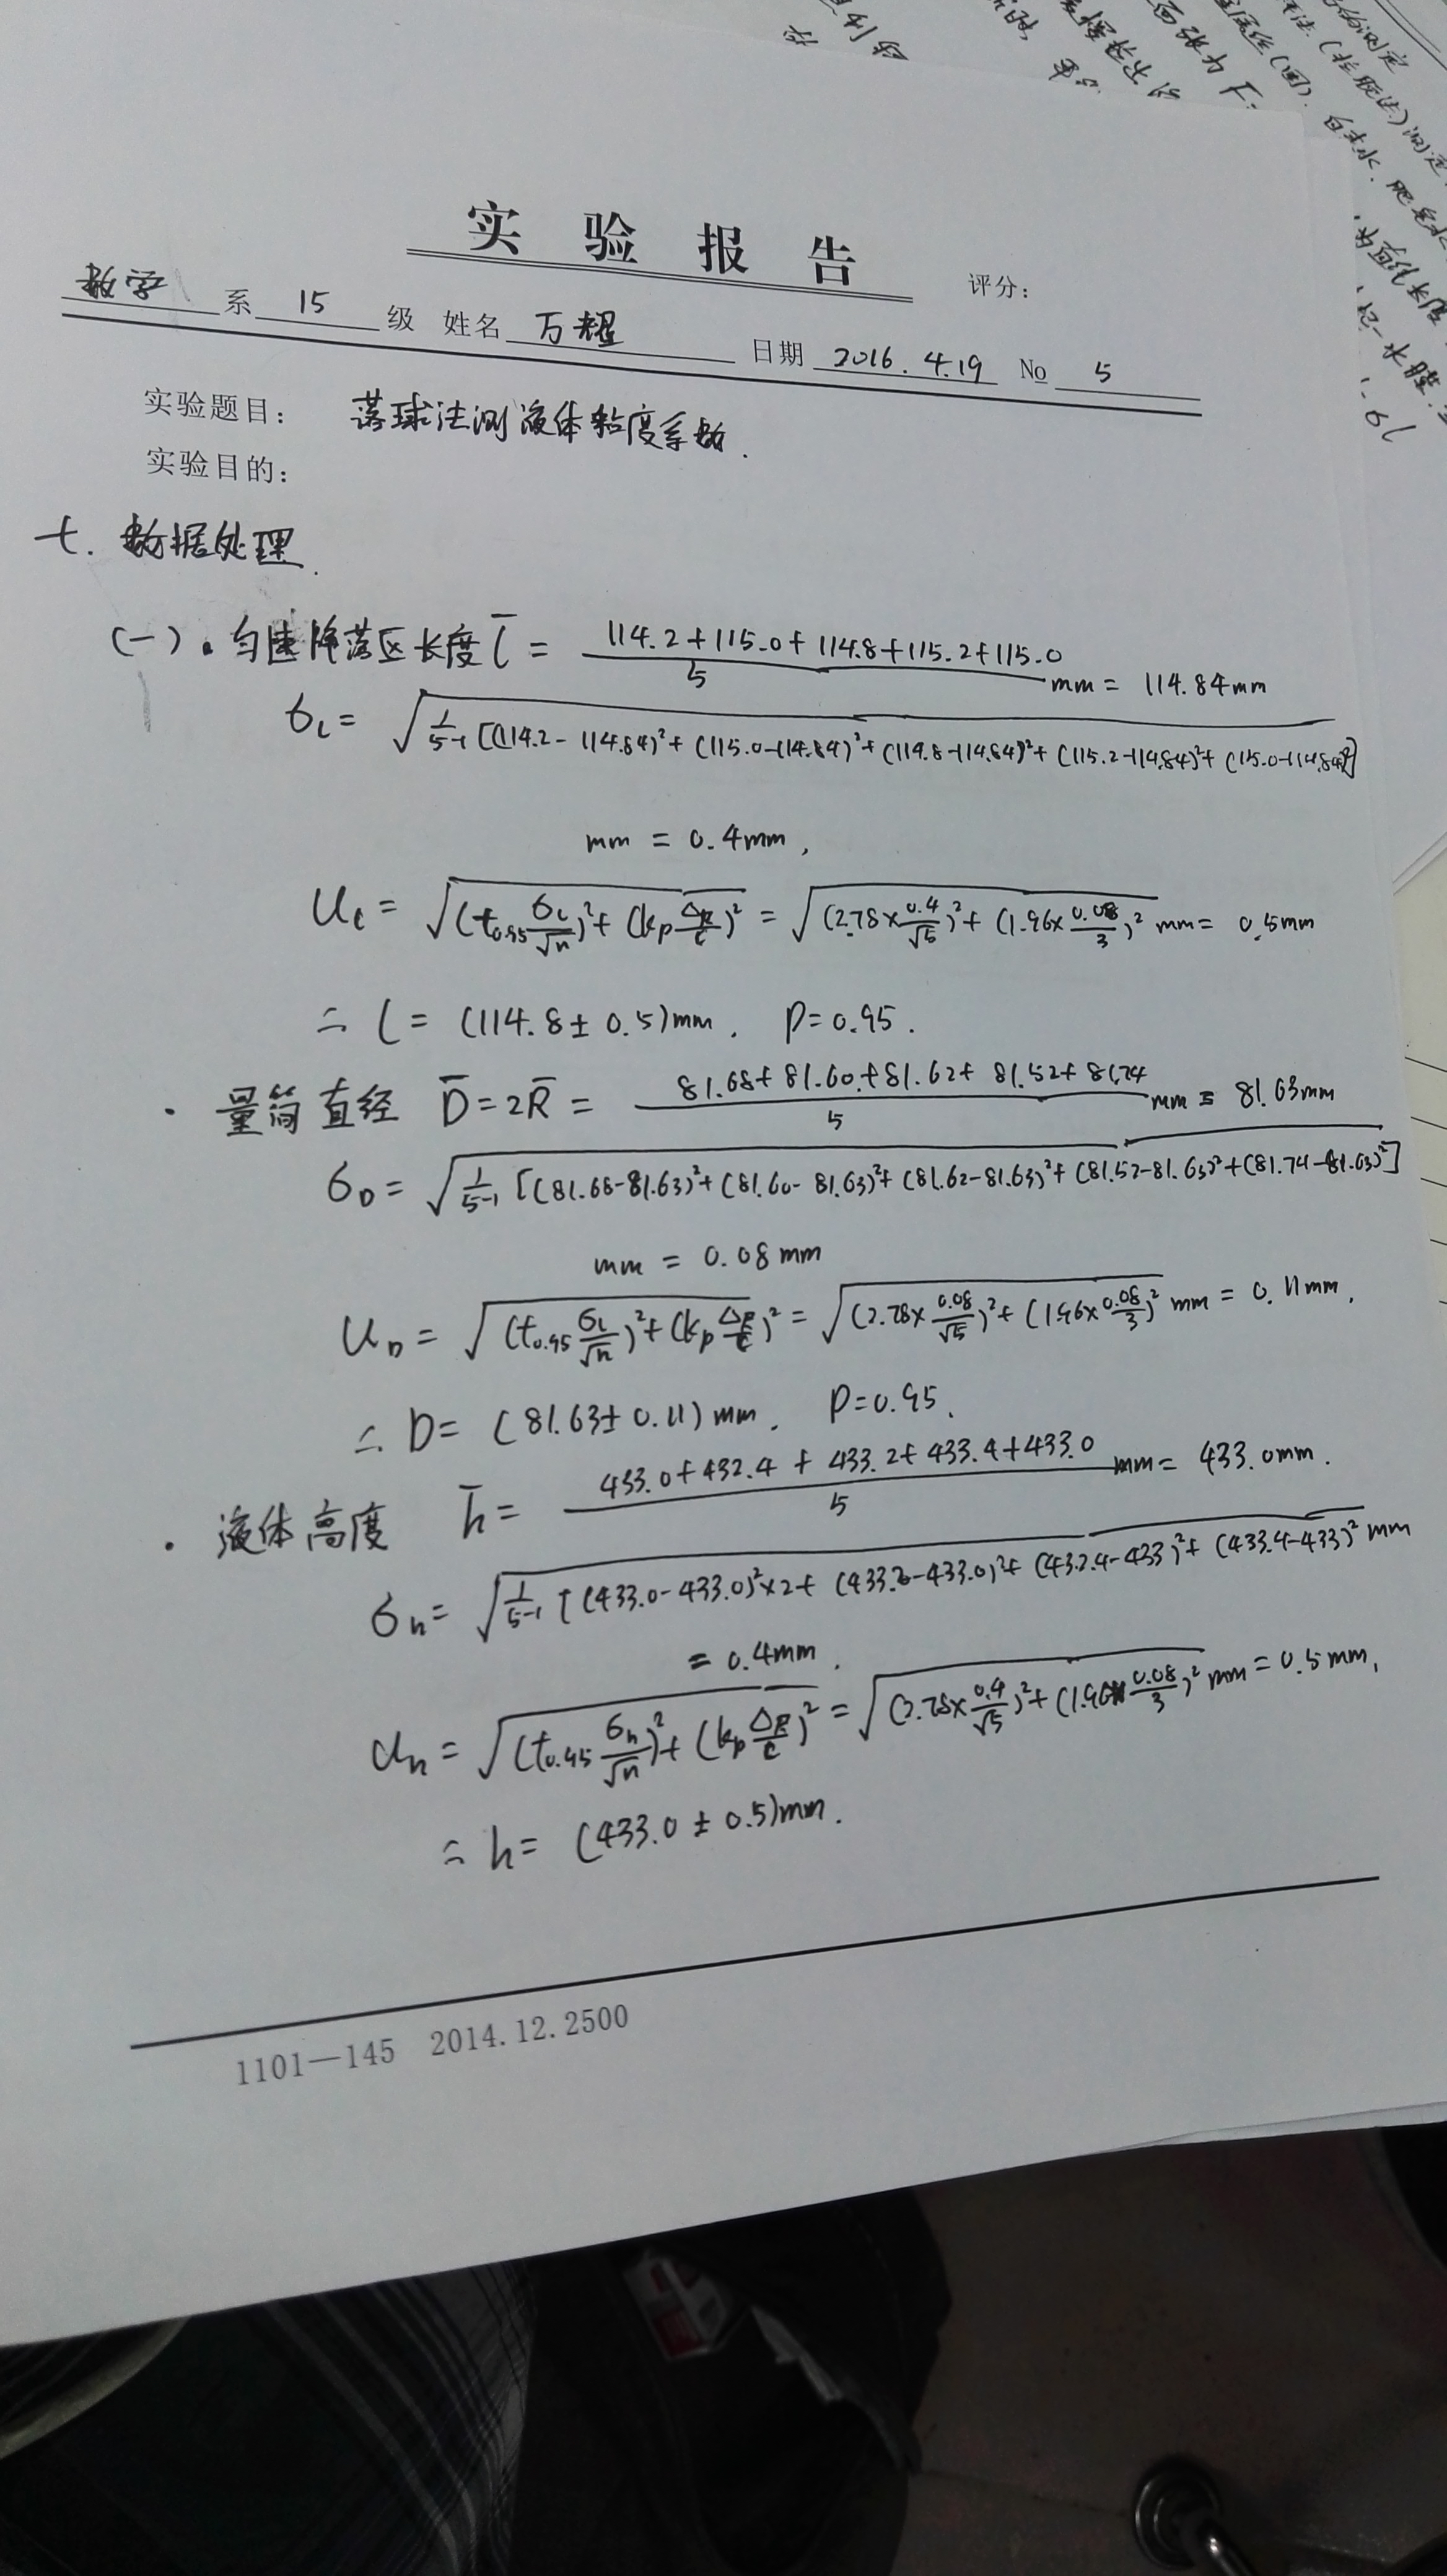 实验报告
评分:
数学系 15级 姓名 万耀 日期 2016.4.19 No 5
实验题目: 落球法测液体粘度系数.
实验目的:
七. 数据处理.
(一). 匀速降落区长度 l̄ = (114.2+115.0+114.8+115.2+115.0)/5 mm = 114.84mm
σl = √(1/(5-1) [(114.2-114.84)²+(115.0-114.84)²+(114.8-114.84)²+(115.2-114.84)²+(115.0-114.84)²]
mm = 0.4mm,
Ul = √((t0.95 σl/√n)²+(kp ΔB/C)²) = √((2.78×0.4/√5)²+(1.96×0.08/3)²) mm = 0.5mm
∴ l = (114.8±0.5)mm. P=0.95.
· 量筒直径 D̄=2R̄ = (81.68+81.60+81.62+81.52+81.74)/5 mm = 81.63mm
σD = √(1/(5-1) [(81.68-81.63)²+(81.60-81.63)²+(81.62-81.63)²+(81.52-81.63)²+(81.74-81.63)²]
mm = 0.08mm
UD = √((t0.95 σl/√n)²+(kp ΔB/C)²) = √((2.78×0.08/√5)²+(1.96×0.08/3)²) mm = 0.11mm.
∴ D = (81.63±0.11)mm. P=0.95.
· 液体高度 h̄ = (433.0+432.4+433.2+433.4+433.0)/5 mm = 433.0mm.
σh = √(1/(5-1) [(433.0-433.0)²×2+(433.2-433.0)²+(432.4-433)²+(433.4-433)² mm
= 0.4mm.
Uh = √((t0.95 σh/√n)²+(kp ΔB/C)²) = √((2.78×0.4/√5)²+(1.96×0.08/3)²) mm = 0.5mm,
∴ h = (433.0±0.5)mm.
1101—145 2014.12.2500